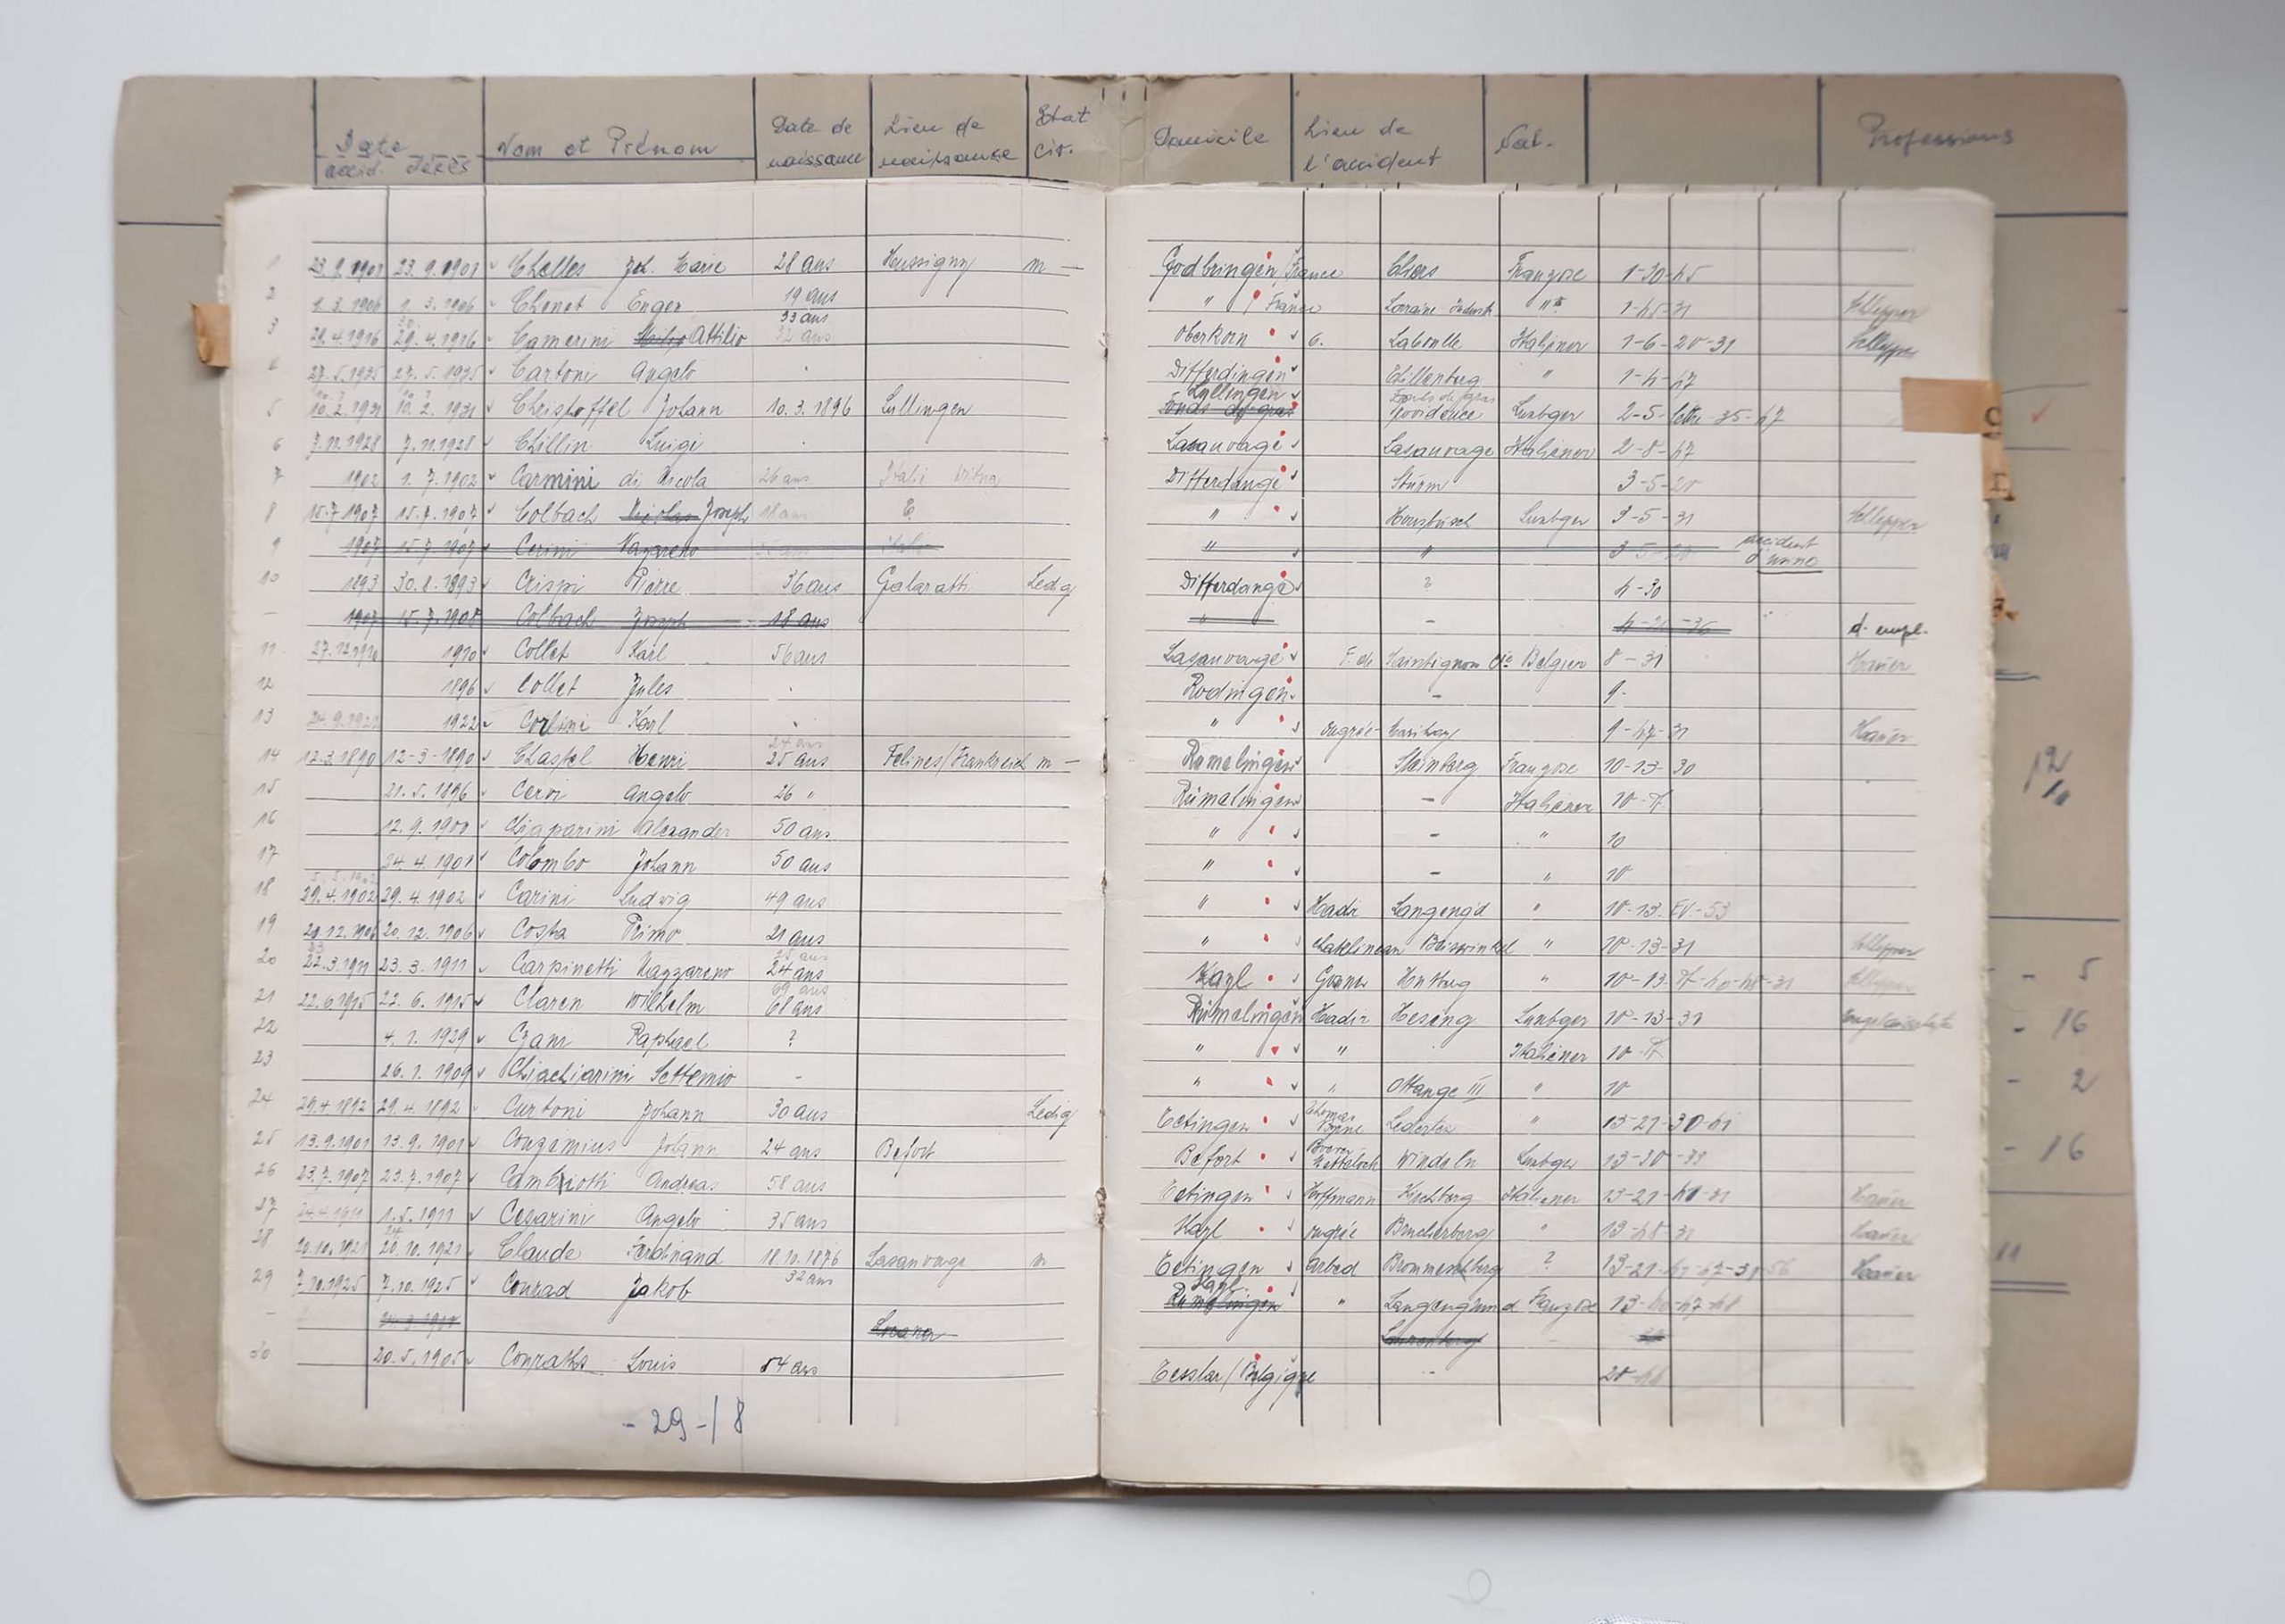 Date Nom et Prénom Date de Lieu de Etat Domicile Lieu de Nat. Professions
accid. décès naissance naissance civ. l'accident
1 23.9.1901 23.9.1901 Cholles Joh. Marie 28 ans Hussigny m — Godbringen, France Chiers Franzose 1-30-45
2 1.3.1906 1.3.1906 Chenet 19 ans " France Lorraine 1-45-31 Schlepper
3 29.4.1916 29.4.1916 Camerini Attilio 33 ans 32 ans Oberkorn G. Italiener 1-6-20-31 Schlepper
4 27.5.1935 27.5.1935 Cartoni Angelo Differdingen Thillenberg " 1-4-47
5 10.2.1931 10.2.1931 Christoffel Johann 10.3.1896 Lullingen Lullingen Fonds de gras Fonds de gras Providence Luxbger 2-5- 35-47
6 7.11.1928 7.11.1928 Chillin Luigi Lasauvage Lasauvage Italiener 2-8-47
7 1902 1.7.1902 Carmini di Nicola 26 ans Differdange Sturm 3-5-20
8 15.7.1907 15.7.1907 Colbach Nicolas Joseph 18 ans E. " Luxbger 3-5-31 Schlepper
9 1907 15.7.1907 Cerini Nazareno Italie " " 3-5-20 accident d'usine
10 1893 30.8.1893 Crispi Pierre 36 ans Galaratti Ledig Differdange ? 4-30
— 1907 15.7.1907 Colbach Joseph 18 ans " — d. empl.
11 27.12.1910 1910 Collet Karl 56 ans Lasauvage F. de Saintignon Cie Belgier 8-31 Hauer
12 1896 Collet Jules Rodingen — 9-
13 24.9.1922 1922 Corsini Karl " Ougrée Marihay 9-47-31 Hauer
14 12.3.1890 12-3-1890 Chastel Henri 24 ans 25 ans Felines/Frankreich m — Rümelingen Steinberg Franzose 10-13-30
15 21.5.1896 Cervi Angelo 26 " Rümelingen — Italiener 10-
16 12.9.1900 Chiaparini Alexander 50 ans " — " 10
17 24.4.1901 Colombo Johann 50 ans " — " 10
18 29.4.1902 29.4.1902 Carini Ludwig 49 ans " Hadir Langengd " 10-13. -53
19 20.12.1906 20.12.1906 Costa Primo 21 ans " Chatelineau " 10-13-31 Schlepper
20 22.3.1911 23.3.1911 Carpinetti Nazzareno 25 ans 24 ans Kayl " 10-13 Schlepper
21 22.6.1915 22.6.1915 Claren Wilhelm 69 ans 68 ans Rümelingen Hadir Hesing Luxbger 10-13-31
22 4.1.1929 Czani Raphael ? " " Italiener 10-
23 26.1.1909 Chiachiarini Settemio — " " Ottange III " 10
24 29.4.1892 29.4.1892 Curtoni Johann 30 ans Ledig Tetingen " 13-21-30-41
25 13.9.1901 13.9.1901 Conzemius Johann 24 ans Befort Befort Luxbger 13-30-
26 23.7.1907 23.7.1907 Cambiotti Andreas 58 ans Tetingen Hoffmann Kirchberg Italiener 13-21-41-31 Hauer
27 24.4.1911 1.5.1911 Cesarini Angelo 35 ans Kayl Ougrée Brucherberg " 13-48-31 Hauer
28 20.10.1921 20.10.1921 Claude Ferdinand 18.11.1876 Lasauvage m Tetingen Arbed Brommeschberg ? 13-21- Hauer
29 7.10.1925 7.10.1925 Conrad Jakob 32 ans Kayl Rümelingen " Langengrund Franzose 13-40-47-48
30 20.5.1905 Conraths Louis 54 ans Tesslar/Belgique — 20-48
- 29 - / 8
12
- 5
- 16
- 2
- 16
11